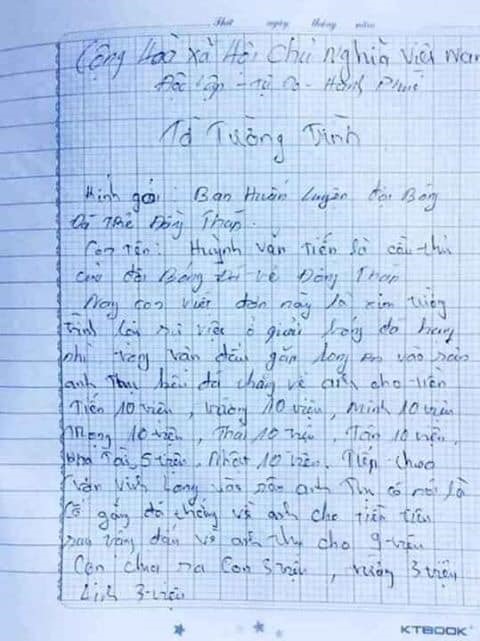 Thứ ngày tháng năm
Cộng Hoà xã Hội Chủ nghĩa Việt Nam
Độc lập - Tự Do - Hạnh Phúc
Tờ Tường Trình
Kính gởi: Ban Huấn Luyện đội Bóng
Đá Trẻ Đồng Tháp.
Con tên: Huỳnh văn Tiến là cầu thủ
của đội Bóng trẻ Đồng Tháp
Nay con viết đơn này là xin tường
trình lại sự việc ở giải bóng đá hạng
nhì vòng đấu gặp long An vào sân
anh Thy kêu đá chẳng về anh cho tiền
Tiến 10 triệu, vương 10 triệu, Minh 10 triệu
10 triệu, Thái 10 triệu, Tân 10 triệu,
Tài 5 triệu, Nhật 10 triệu. Tiếp theo
trận vĩnh long vào sân anh Thy có nói là
cố gắng đá về anh cho tiền tiêu
sau trận đấu về anh Thy cho 9 triệu
Con chia ra Con 3 triệu, vương 3 triệu
3 triệu
KTBOOK